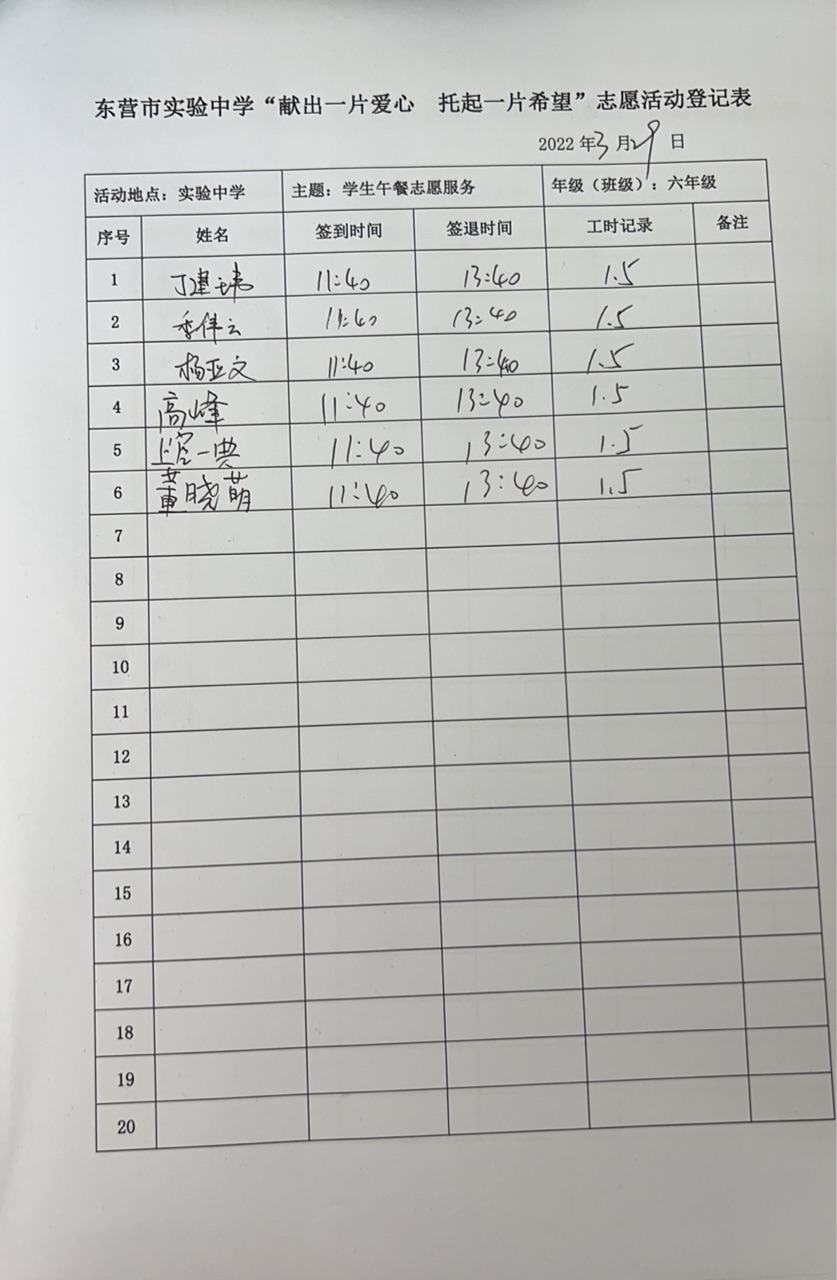 东营市实验中学“献出一片爱心 托起一片希望”志愿活动登记表
2022 年3月29日
活动地点：实验中学 主题：学生午餐志愿服务 年级（班级）：六年级
序号 姓名 签到时间 签退时间 工时记录 备注
1 丁建玮 11:40 13:40 1.5
2 季伟云 11:40 13:40 1.5
3 杨亚文 11:40 13:40 1.5
4 高峰 11:40 13:40 1.5
5 一典 11:40 13:40 1.5
6 董晓萌 11:40 13:40 1.5
7
8
9
10
11
12
13
14
15
16
17
18
19
20